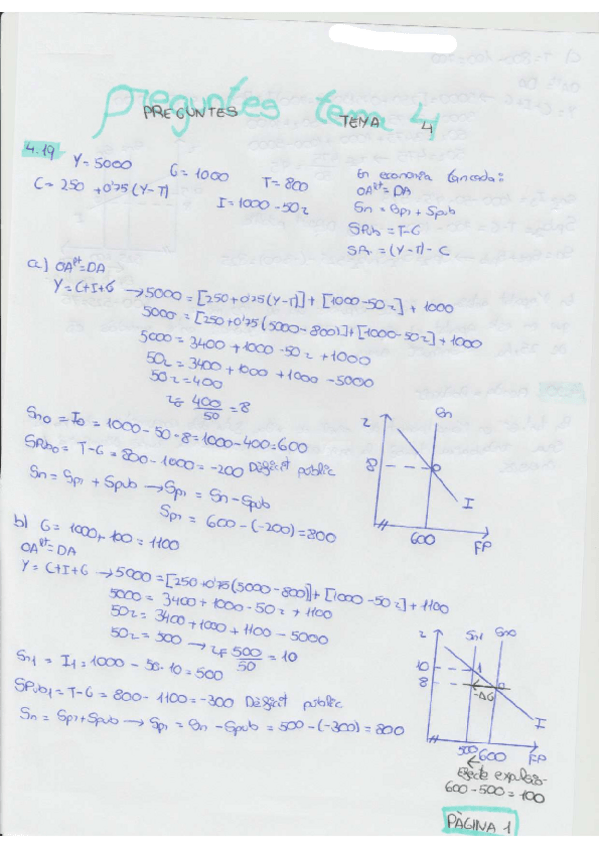 preguntes tema 4
PREGUNTES TEMA 4
4.19 Y = 5000 G = 1000 T = 800
C = 250 + 0'75 (Y-T) I = 1000 - 50r
En economia tancada:
OAᵖˡ = DA
Sn = Spr + Spub
SPub = T-G
SPr = (Y-T) - C
a) OAᵖˡ = DA
Y = C+I+G → 5000 = [250 + 0'75 (Y-T)] + [1000-50r] + 1000
5000 = [250 + 0'75 (5000-800)] + [1000-50r] + 1000
5000 = 3400 + 1000 - 50r + 1000
50r = 3400 + 1000 + 1000 - 5000
50r = 400
r = 400/50 = 8
Sn0 = I0 = 1000 - 50·8 = 1000 - 400 = 600
SPub0 = T-G = 800 - 1000 = -200 Dèficit públic
Sn = Spr + Spub → Spr = Sn - Spub
Spr = 600 - (-200) = 800
r
Sn
8
0
I
600
FP
b) G = 1000 + 100 = 1100
OAᵖˡ = DA
Y = C+I+G → 5000 = [250 + 0'75 (5000-800)] + [1000-50r] + 1100
5000 = 3400 + 1000 - 50r + 1100
50r = 3400 + 1000 + 1100 - 5000
50r = 500 → r = 500/50 = 10
Sn1 = I1 = 1000 - 50·10 = 500
SPub1 = T-G = 800 - 1100 = -300 Dèficit públic
Sn = Spr + Spub → Spr = Sn - Spub = 500 - (-300) = 800
r
Sn1 Sn0
10
1
8
0
-ΔG
I
500 600 FP
Efecte expulsió-
600 - 500 = 100
PÀGINA 1